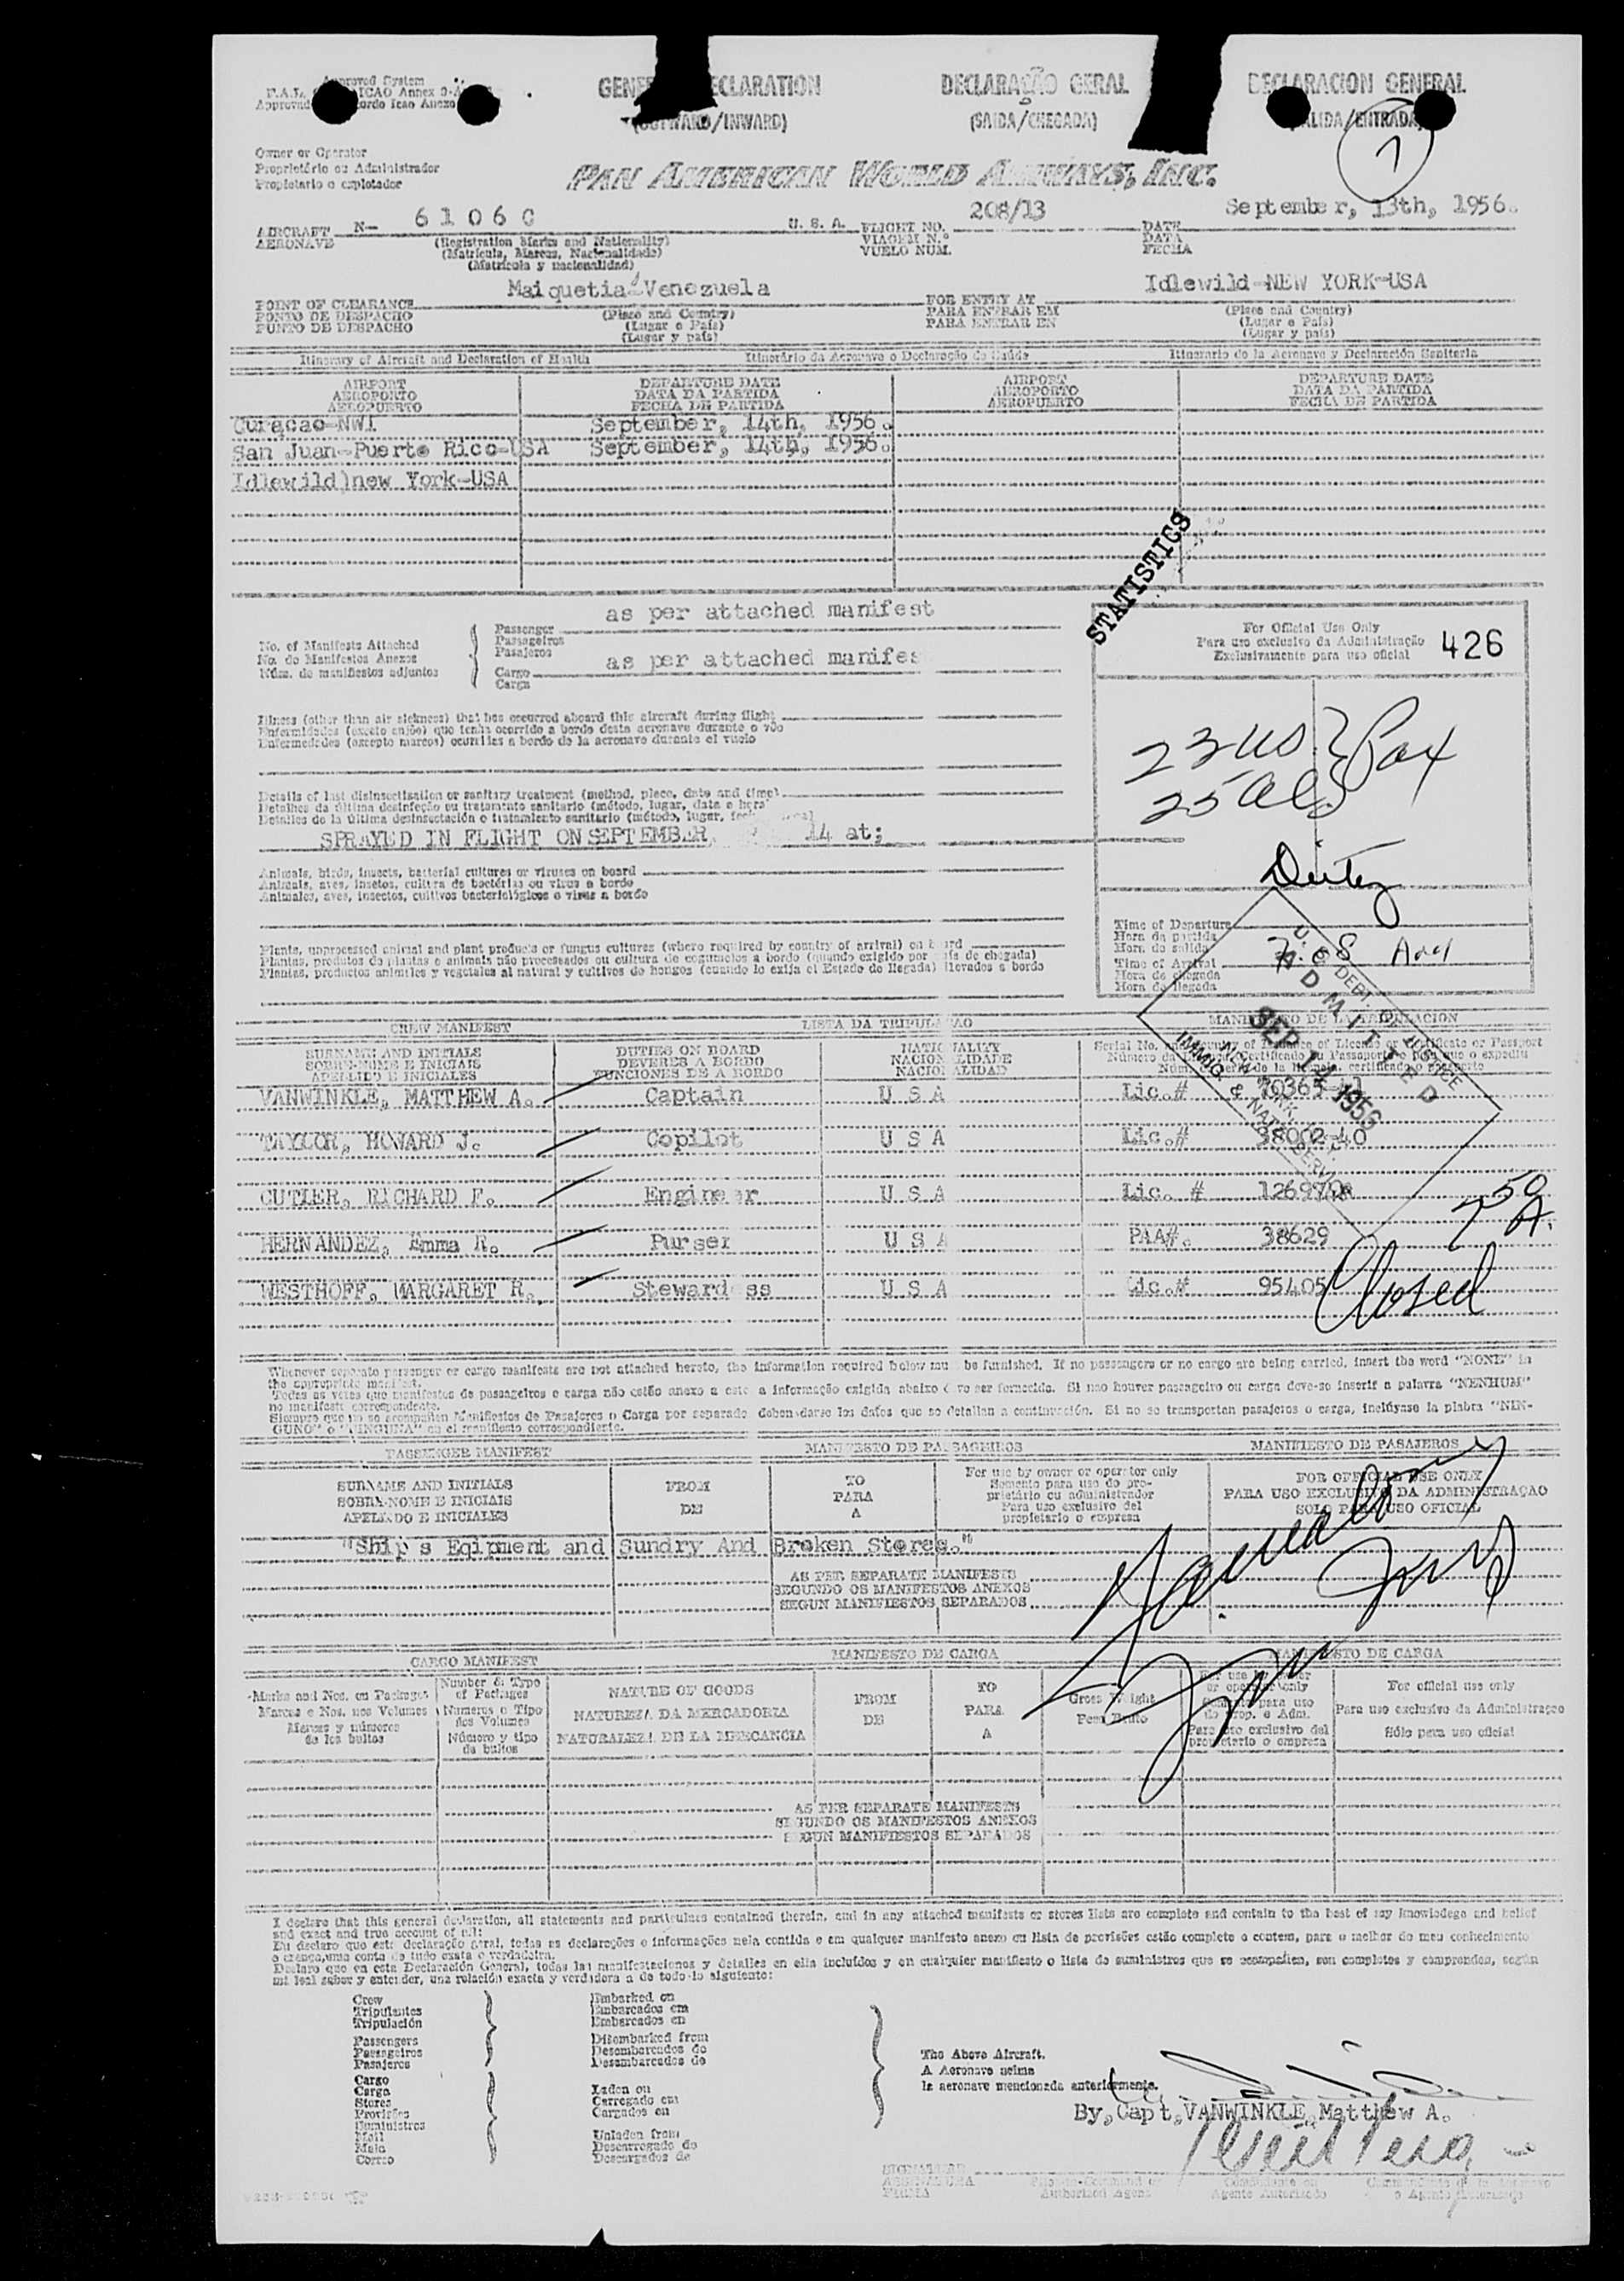 Approved System
ICAO Annex 9-
GENE ECLARATION DECLARAÇÃO GERAL DECLARACION GENERAL
(OUTWARD/INWARD) (SAIDA/CHEGADA) ALIDA/ENTRADA)
1
Owner or Operator
Proprietário ou Administrador
Propietario o explotador
PAN AMERICAN WORLD AIRWAYS, INC.
AIRCRAFT N- 6 1 0 6 C U. S. A. FLIGHT NO. 208/13 DATE September, 13th, 1956.
AERONAVE (Registration Marks and Nationality) VIAGEM N.º DATA
(Matrícula, Marcas, Nacionalidade) VUELO NUM. FECHA
(Matrícula y nacionalidad)
POINT OF CLEARANCE Maiquetia-Venezuela FOR ENTRY AT Idlewild-NEW YORK-USA
PONTO DE DESPACHO (Place and Country) PARA ENTRAR EM (Place and Country)
PUNTO DE DESPACHO (Lugar e País) PARA ENTRAR EN (Lugar e País)
(Lugar y país) (Lugar y país)
Itinerary of Aircraft and Declaration of Health Itinerário da Aeronave e Declaração de Saúde Itinerario de la Aeronave y Declaración Sanitaria
AIRPORT DEPARTURE DATE AIRPORT DEPARTURE DATE
AEROPORTO DATA DA PARTIDA AEROPORTO DATA DA PARTIDA
AEROPUERTO FECHA DE PARTIDA AEROPUERTO FECHA DE PARTIDA
Curaçao-NWI September, 14th, 1956.
San Juan-Puerto Rico-USA September, 14th, 1956.
Idlewild)new York-USA
STATISTICS
No. of Manifests Attached Passenger as per attached manifest
No. do Manifestos Anexos Passageiros
Núm. de manifiestos adjuntos Pasajeros
Cargo as per attached manifes
Carga
For Official Use Only
Para uso exclusivo da Administração 426
Exclusivamente para uso oficial
23 US } Pax
25 Al
Illness (other than air sickness) that has occurred aboard this aircraft during flight
Enfermidades (exceto enjôo) que tenha ocorrido a bordo desta aeronave durante o vôo
Enfermedades (excepto mareos) ocurridas a bordo de la aeronave durante el vuelo
Details of last disinsectisation or sanitary treatment (method, place, date and time)
Detalhes da última desinfeção ou tratamento sanitario (método, lugar, data e hora)
Detalles de la última desinsectación o tratamiento sanitario (método, lugar,
SPRAYED IN FLIGHT ON SEPTEMBER, 14 at;
Animals, birds, insects, bacterial cultures or viruses on board
Animais, aves, insetos, cultura de bactérias ou virus a bordo
Animales, aves, insectos, cultivos bacteriológicos o virus a bordo
Plants, unprocessed animal and plant products or fungus cultures (where required by country of arrival) on board
Plantas, produtos de plantas e animais não processados ou cultura de cogumelos a bordo (quando exigido por país de chegada)
Plantas, productos animales y vegetales al natural y cultivos de hongos (cuando lo exija el Estado de llegada) llevados a bordo
Time of Departure
Hora da partida
Hora de salida
Time of Arrival
Hora da chegada
Hora de llegada
U. S. DEPT. OF JUSTICE
ADMITTED
SEP 14 1956
NEW YORK, N.Y.
IMMIG. & NATZ. SERVICE
CREW MANIFEST LISTA DA TRIPULAÇAO MANIFIESTO DE LA TRIPULACION
SURNAME AND INITIALS DUTIES ON BOARD NATIONALITY Serial No. and Country of Issuance of License or Certificate or Passport
SOBRE-NOME E INICIAIS DEVERES A BORDO NACIONALIDADE
APELLIDO E INICIALES FUNCIONES DE A BORDO NACIONALIDAD
VANWINKLE, MATTHEW A. Captain U S A Lic.#
TAYLOR, HOWARD J. Copilot U S A Lic.# 38002-40
CUTLER, RICHARD F. Engineer U S A Lic. #
HERNANDEZ, Emma R. Purser U S A PAA#. 38629
WESTHOFF, MARGARET R. Stewardess U S A Lic.# 95405
Closed
Whenever separate passenger or cargo manifests are not attached hereto, the information required below must be furnished. If no passengers or no cargo are being carried, insert the word "NONE" in
the appropriate manifest.
Todas as vezes que manifestos de passageiros e carga não estão anexo a este a informação exigida abaixo deve ser fornecida. Si nao houver passageiro ou carga deve-se inserir a palavra "NENHUM"
no manifesto correspondente.
Siempre que no se acompañen Manifiestos de Pasajeros o Carga por separado deben darse los datos que se detallan a continuación. Si no se transportan pasajeros o carga, inclúyase la plabra "NIN-
GUNO" o "NINGUNA" en el manifiesto correspondiente.
PASSENGER MANIFEST MANIFESTO DE PASSAGEIROS MANIFIESTO DE PASAJEROS
SURNAME AND INITIALS FROM TO For use by owner or operator only FOR OFFICIAL USE ONLY
SOBRA-NOME E INICIAIS DE PARA Somente para uso do pro- PARA USO EXCLUSIVO DA ADMINISTRAÇAO
APELLIDO E INICIALES A prietário ou administrador SOLO PARA USO OFICIAL
Para uso exclusivo del
propietario o empresa
"Ship s Eqipment and Sundry And Broken Stores."
AS PER SEPARATE MANIFESTS
SEGUNDO OS MANIFESTOS ANEXOS
SEGUN MANIFIESTOS SEPARADOS
CARGO MANIFEST MANIFESTO DE CARGA MANIFIESTO DE CARGA
Marks and Nos. on Packages Number & Type of Packages NATURE OF GOODS FROM TO Gross Weight For use by owner or operator only For official use only
Marcas e Nos. nos Volumes Numeros o Tipo dos Volumes NATUREZA DA MERCADORIA DE PARA Peso Bruto Para uso exclusivo da Administraçao
Marcas y números de los bultos Número y tipo de bultos NATURALEZA DE LA MERCANCIA A Para uso exclusivo del propietario o empresa Sólo para uso oficial
AS PER SEPARATE MANIFESTS
SEGUNDO OS MANIFESTOS ANEXOS
SEGUN MANIFIESTOS SEPARADOS
I declare that this general declaration, all statements and particulars contained therein, and in any attached manifests or stores lists are complete and contain to the best of my knowledege and belief
and exact and true account of all:
Eu declaro que este declaração geral, todas as declarações e informações nela contida e em qualquer manifesto anexo ou lista de provisões estão completo e contem, para o melhor do meu conhecimento
e crença, uma conta de tudo exata e verdadeira.
Declaro que en esta Declaración General, todas las manifestaciones y detalles en ella incluídos y en cualquier manifiesto o lista de suministros que se acompañen, son completos y comprenden, según
mi leal saber y entender, una relación exacta y verdadera a de todo lo siguiente:
Crew Embarked on
Tripulantes Embarcados em
Tripulación Embarcados en
Passengers Disembarked from
Passageiros Desembarcados do
Pasajeros Desembarcados de
Cargo
Carga Laden on
Stores Carregado em
Provisões Cargados en
Suministros
Mail Unladen from
Mala Descarregado do
Correo Descargados de
The Above Aircraft.
A Aeronave acima
la aeronave mencionada anteriormente.
By, Capt, VANWINKLE, Matthew A.
SIGNATURE
ASSINATURA Authorized Agent Agente Autorizado o Agente Autorizado
FIRMA